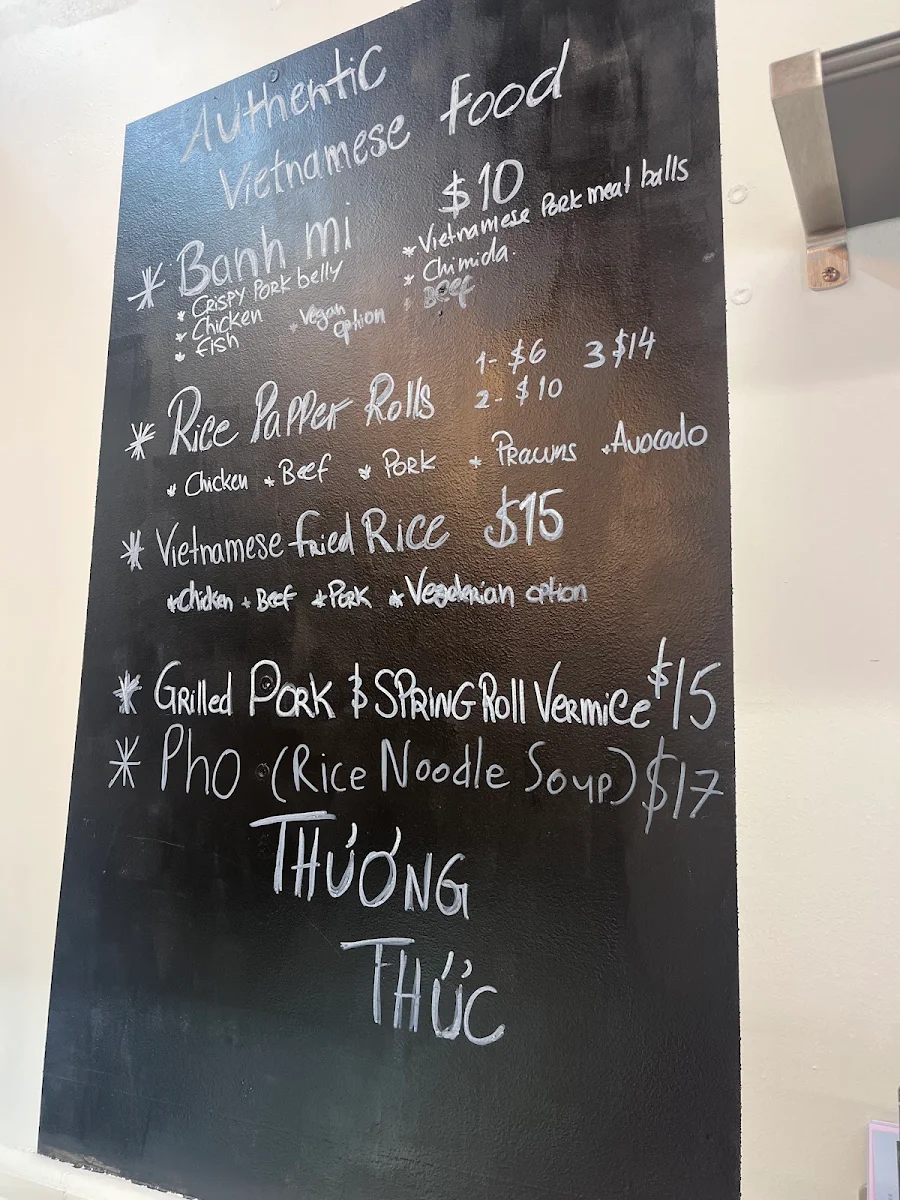 Authentic
Vietnamese food
* Banh mi $10
* Crispy Pork belly
* Chicken
* fish
* Vegan option
* Vietnamese Pork meat balls
* Chimida.
* Beef
* Rice Papper Rolls 1- $6 3 $14
2- $10
* Chicken * Beef * Pork * Prawns * Avocado
* Vietnamese fried Rice $15
* Chicken * Beef * Pork * Vegeterian option
* Grilled Pork & SPRING Roll Vermice $15
* Pho (Rice Noodle Soup) $17
THƯỞNG
THỨC